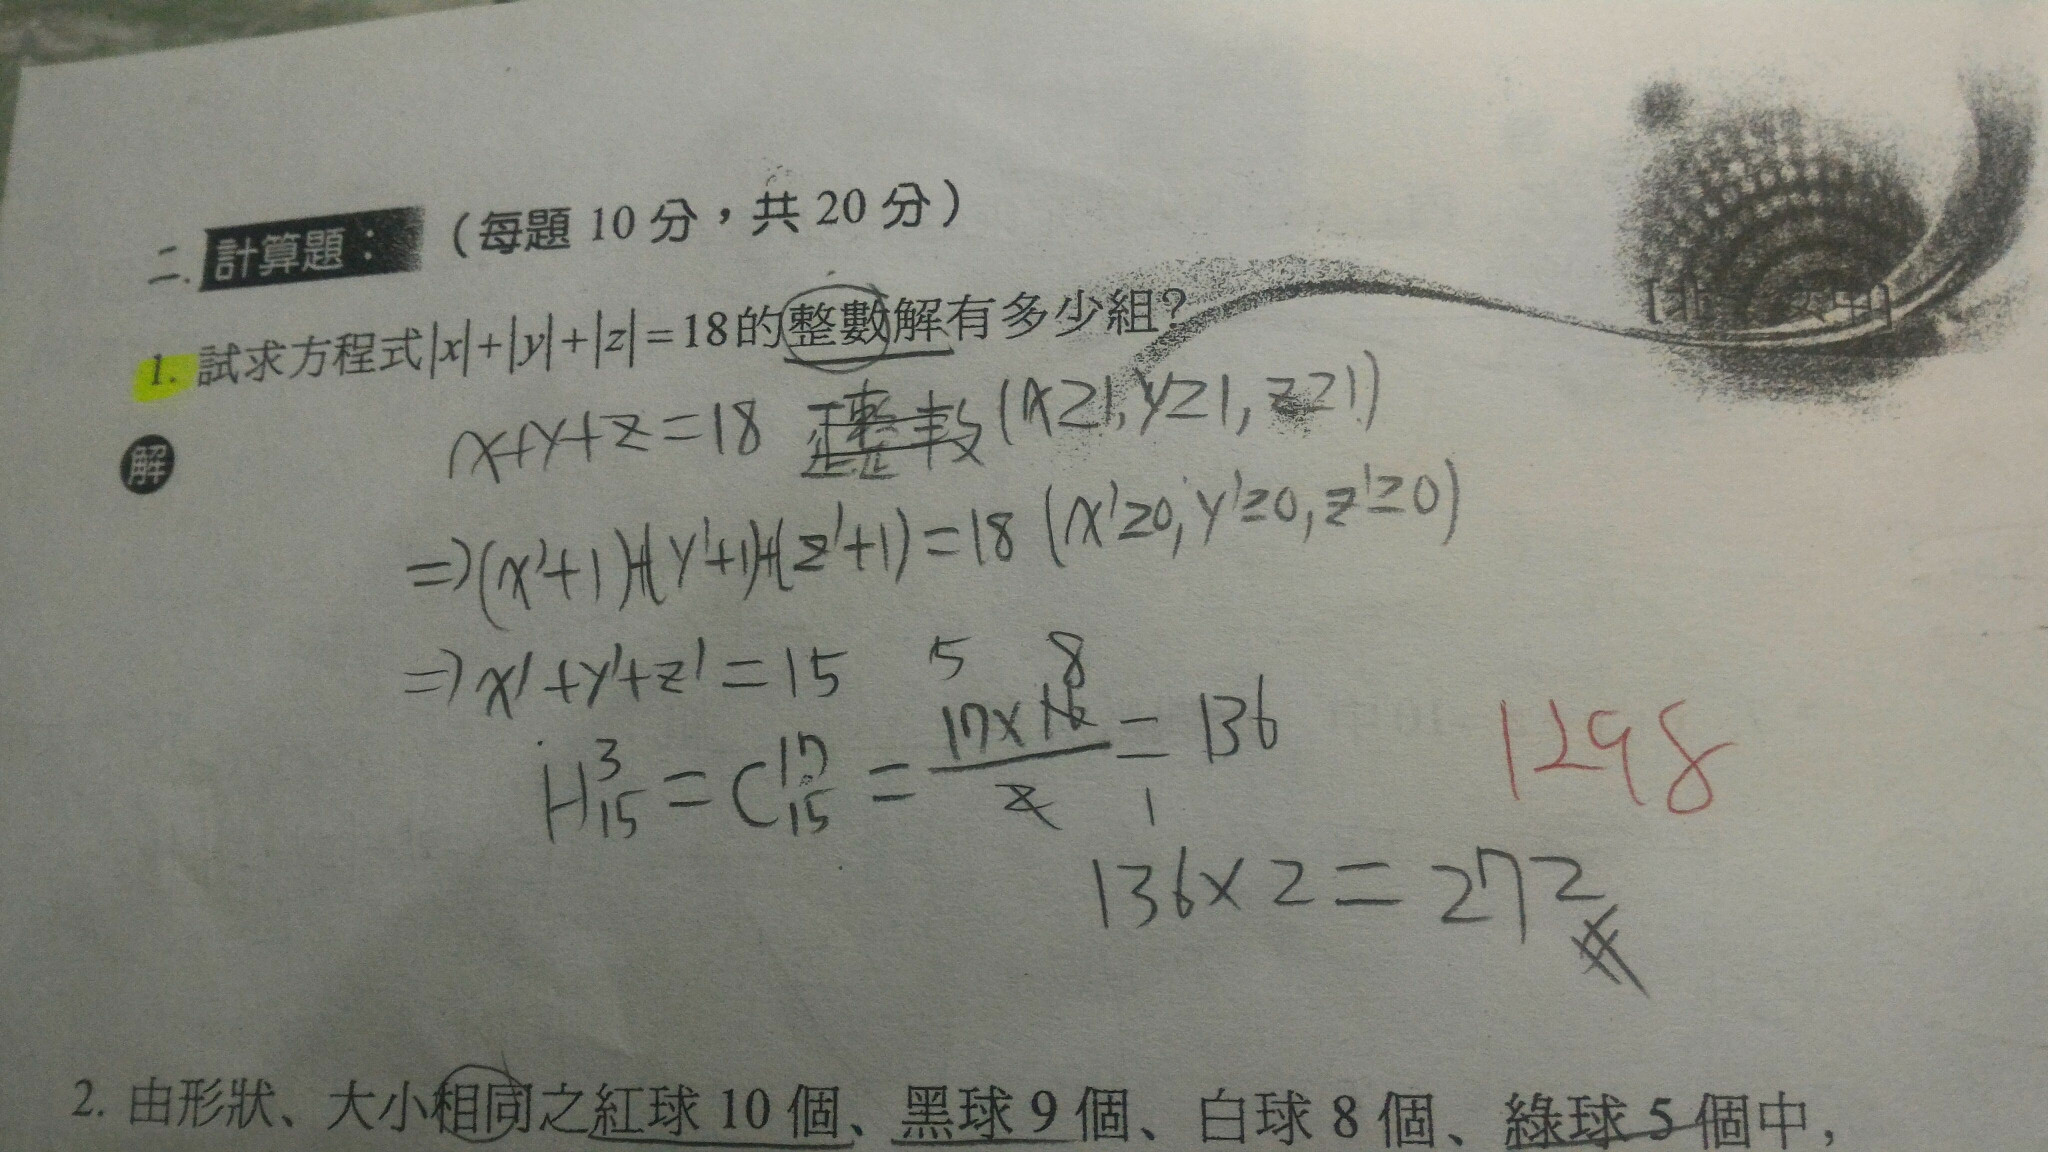 二. 計算題：（每題 10 分，共 20 分）
1. 試求方程式|x|+|y|+|z|=18的整數解有多少組?
解
x+y+z=18 (x≥1, y≥1, z≥1)
=>(x'+1)+(y'+1)+(z'+1)=18 (x'≥0, y'≥0, z'≥0)
=> x'+y'+z'=15
H³₁₅ = C¹⁷₁₅ = 17×16/2 = 136
8
1
1298
136×2=272
2. 由形狀、大小相同之紅球 10 個、黑球 9 個、白球 8 個、綠球 5 個中，